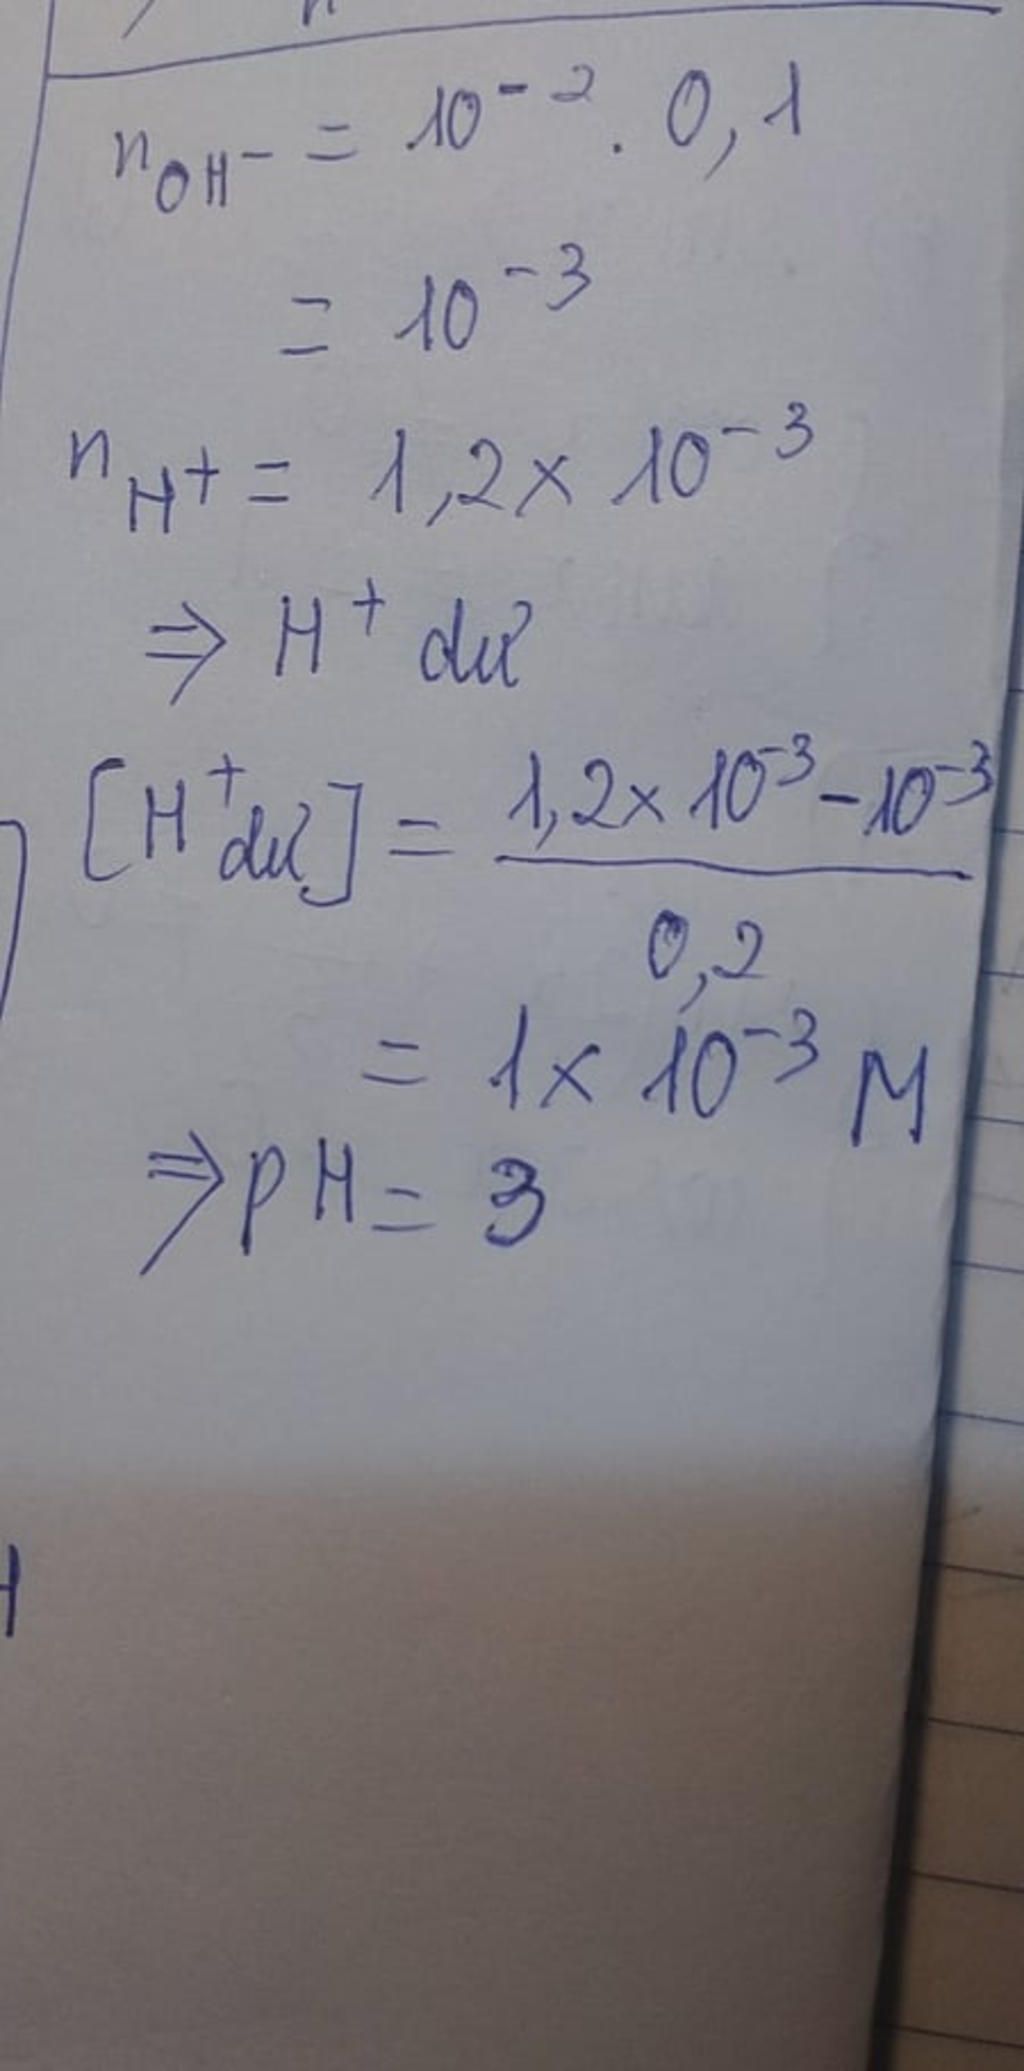 n
n_OH⁻ = 10⁻² . 0,1
= 10⁻³
n_H⁺ = 1,2 × 10⁻³
⇒ H⁺ dư
[H⁺dư] = (1,2 × 10⁻³ - 10⁻³) / 0,2
= 1 × 10⁻³ M
⇒ pH = 3